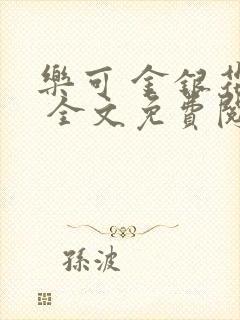 樂可 金銀花
全文免費閱
孫波